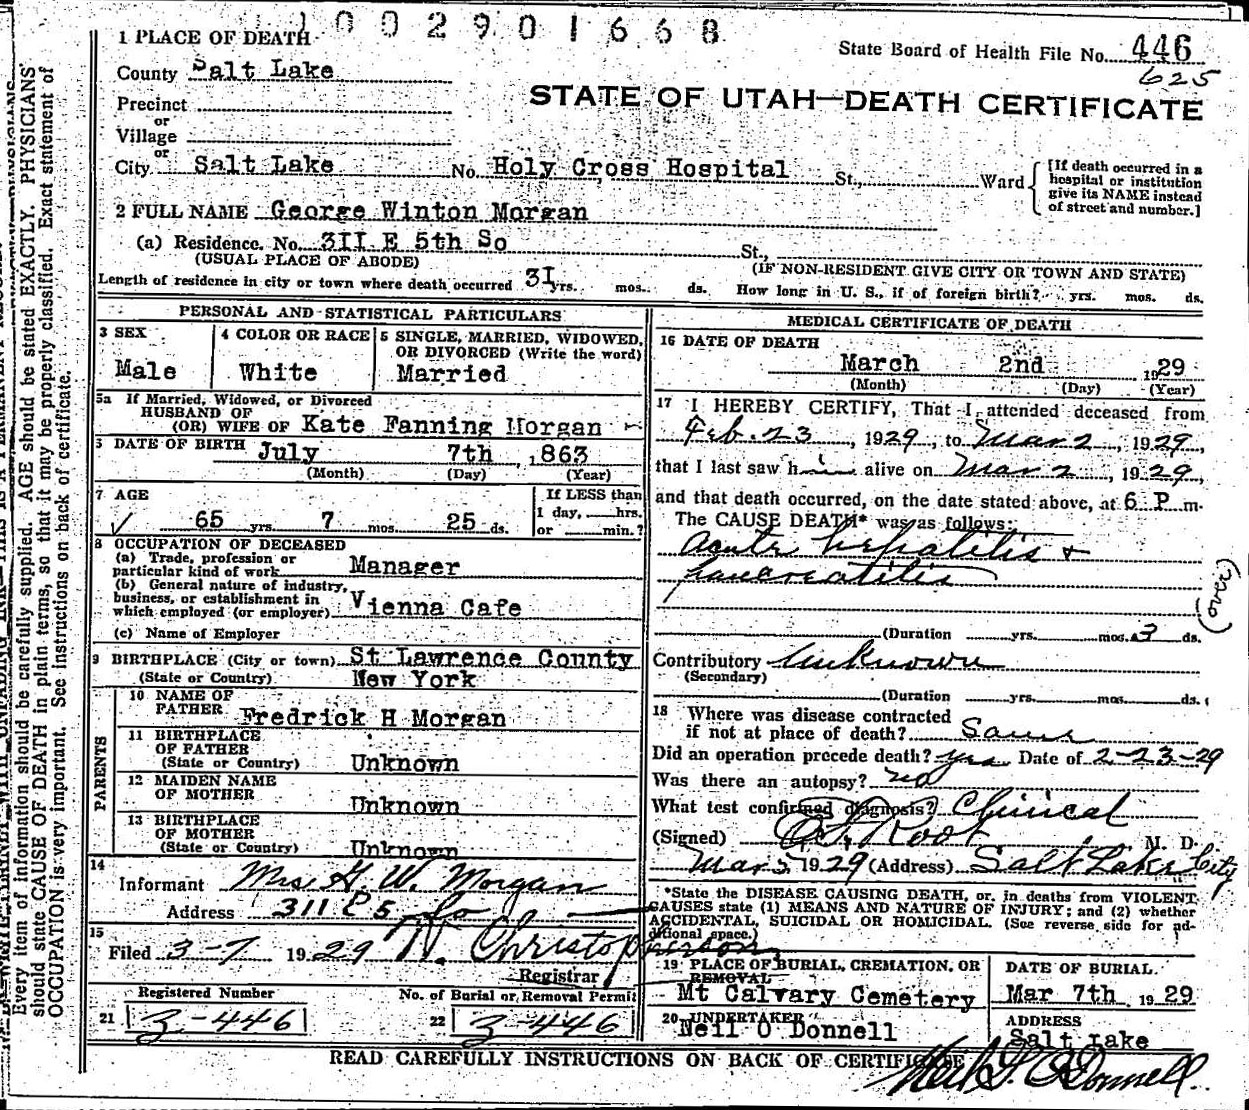 1002901668
1 PLACE OF DEATH
State Board of Health File No. 446
625
County Salt Lake
STATE OF UTAH—DEATH CERTIFICATE
Precinct
or
Village
or
City Salt Lake No. Holy Cross Hospital St., Ward
[If death occurred in a
hospital or institution
give its NAME instead
of street and number.]
2 FULL NAME George Winton Morgan
(a) Residence. No. 3II E 5th So St.,
(USUAL PLACE OF ABODE) (IF NON-RESIDENT GIVE CITY OR TOWN AND STATE)
Length of residence in city or town where death occurred 3I yrs. mos. ds. How long in U. S., if of foreign birth? yrs. mos. ds.
PERSONAL AND STATISTICAL PARTICULARS
3 SEX
Male
4 COLOR OR RACE
White
5 SINGLE, MARRIED, WIDOWED,
OR DIVORCED (Write the word)
Married
5a If Married, Widowed, or Divorced
HUSBAND OF
(OR) WIFE OF Kate Fanning Morgan
6 DATE OF BIRTH July 7th , 1863
(Month) (Day) (Year)
7 AGE
65 yrs. 7 mos. 25 ds.
If LESS than
1 day, hrs.
or min.?
8 OCCUPATION OF DECEASED
(a) Trade, profession or
particular kind of work Manager
(b) General nature of industry,
business, or establishment in
which employed (or employer) Vienna Cafe
(c) Name of Employer
9 BIRTHPLACE (City or town) St Lawrence County
(State or Country) New York
PARENTS
10 NAME OF
FATHER Fredrick H Morgan
11 BIRTHPLACE
OF FATHER
(State or Country) Unknown
12 MAIDEN NAME
OF MOTHER
Unknown
13 BIRTHPLACE
OF MOTHER
(State or Country) Unknown
14
Informant Mrs G. W. Morgan
Address 311 E 5 So
15
Filed 3-7 1929 N. Christopherson
Registrar
Registered Number
21 3-446
No. of Burial or Removal Permit
22 3-446
MEDICAL CERTIFICATE OF DEATH
16 DATE OF DEATH
March 2nd 1929
(Month) (Day) (Year)
17 I HEREBY CERTIFY, That I attended deceased from
Feb. 23, 1929, to Mar 2, 1929,
that I last saw him alive on Mar 2, 1929,
and that death occurred, on the date stated above, at 6 P m.
The CAUSE DEATH* was as follows:
Acute hepatitis +
pancreatitis
(over)
(Duration yrs. mos. 3 ds.
Contributory Unknown
(Secondary)
(Duration yrs. mos. ds.
18 Where was disease contracted
if not at place of death? Same
Did an operation precede death? yes Date of 2-23-29
Was there an autopsy? no
What test confirmed diagnosis? Clinical
(Signed) Root M. D.
Mar 3 1929 (Address) Salt Lake City
*State the DISEASE CAUSING DEATH, or, in deaths from VIOLENT
CAUSES state (1) MEANS AND NATURE OF INJURY; and (2) whether
ACCIDENTAL, SUICIDAL OR HOMICIDAL. (See reverse side for ad-
ditional space.)
19 PLACE OF BURIAL, CREMATION, OR
REMOVAL
Mt Calvary Cemetery
DATE OF BURIAL
Mar 7th , 1929
20 UNDERTAKER
Neil O Donnell
ADDRESS
Salt Lake
READ CAREFULLY INSTRUCTIONS ON BACK OF CERTIFICATE
Neil O'Donnell
Every item of information should be carefully supplied. AGE should be stated EXACTLY. PHYSICIANS
should state CAUSE OF DEATH in plain terms, so that it may be properly classified. Exact statement of
OCCUPATION is very important. See instructions on back of certificate.